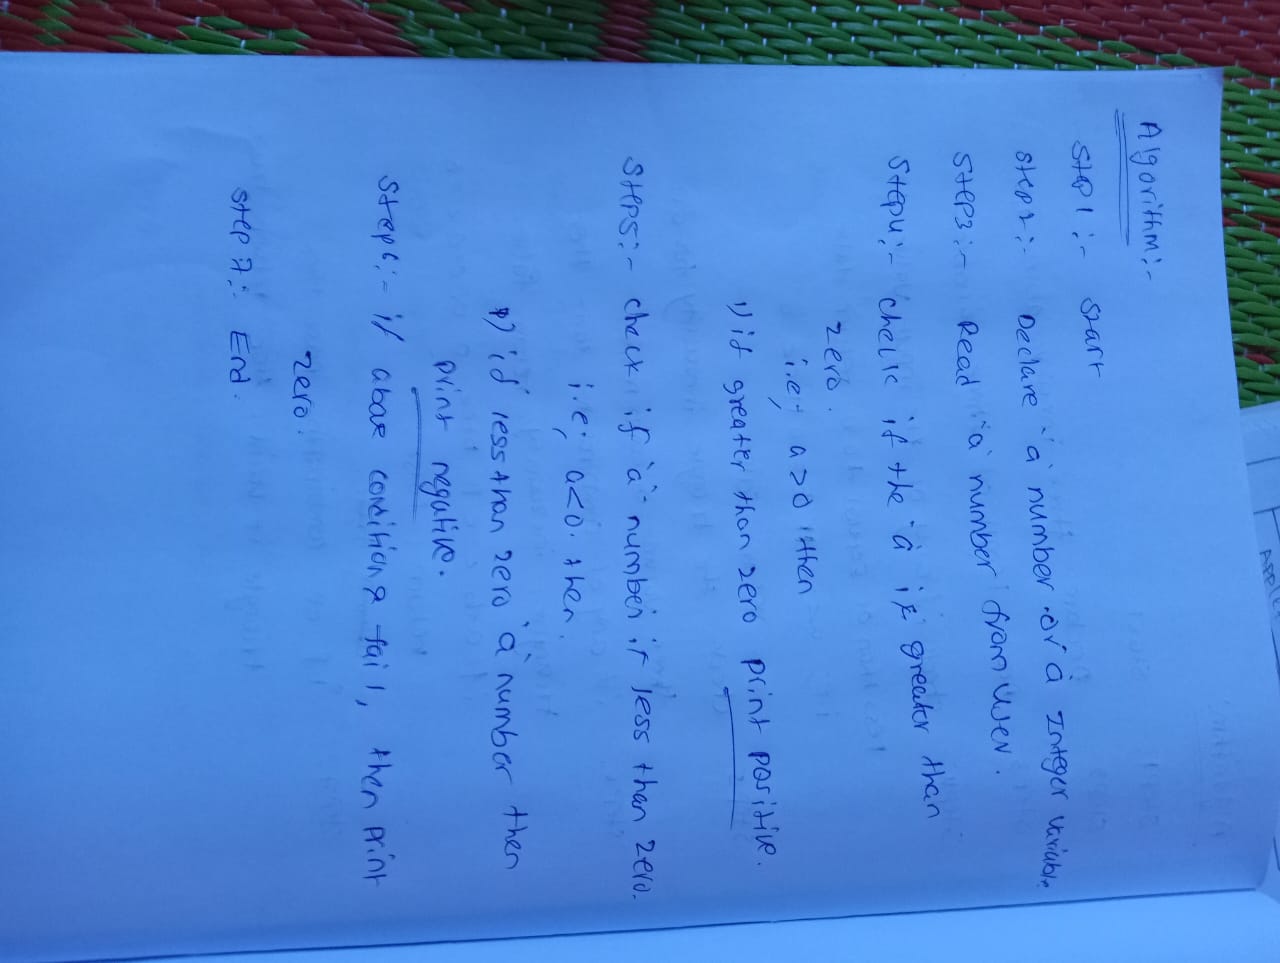 Algorithm:-
Step 1:- Start
Step 2:- Declare 'a' number or 'a' Integer variable
Step 3:- Read 'a' number from user.
Step 4:- Check if the 'a' is greater than
zero.
i.e; a>0 then
1) if greater than zero print positive.
Step 5:- check if 'a' number is less than zero.
i.e; a<0. then.
1) if less than zero 'a' number then
print negative.
Step 6:- if above conditions fail, then print
zero.
Step 7:- End.